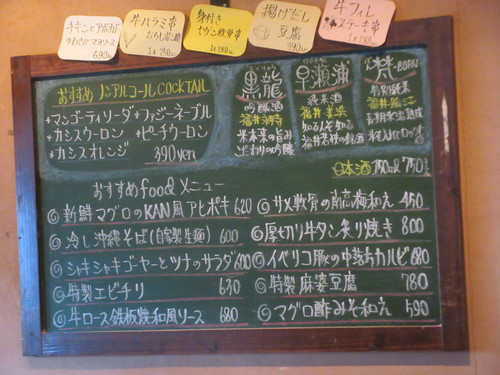 牛ハラミ串
身付き
揚げだし
豆腐
390yen
牛フィレ
ステーキ串
690yen
おすすめ ノンアルコール COCKTAIL
・マンゴーティーソーダ ・ファジーネーブル
・カシスウーロン ・ピーチウーロン
・カシスオレンジ 390yen
黒龍
吟醸酒
福井
米本来の旨み
こだわりの吟醸
早瀬浦
純米酒
福井・美浜
知る人ぞ知る
梵 -BORN-
特別純米
福井・鯖江
日本酒 750
おすすめfood メニュー
◎新鮮マグロのKAN風アヒポキ 620
◎冷し沖縄そば(自家製生麺) 600
◎シャキシャキゴーヤーとツナのサラダ 600
◎特製エビチリ 630
◎牛ロース鉄板焼和風ソース 680
◎サメ軟骨の削高梅和え 450
◎厚切り牛タン炙り焼き 800
◎イベリコ豚の中落ちカルビ 680
◎特製麻婆豆腐 780
◎マグロ酢みそ和え 590